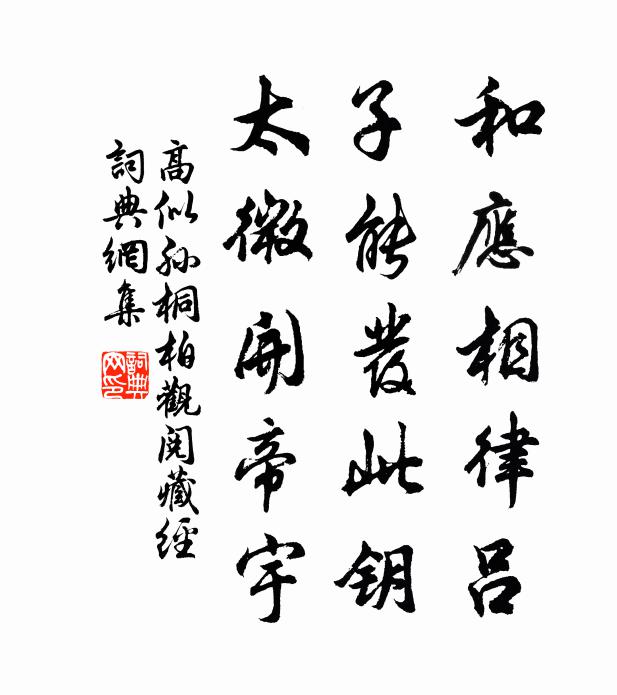 和應相律吕
子能發此鑰
太微開帝宇
高似孫桐柏觀閱藏經
詞典網集
詞典網印